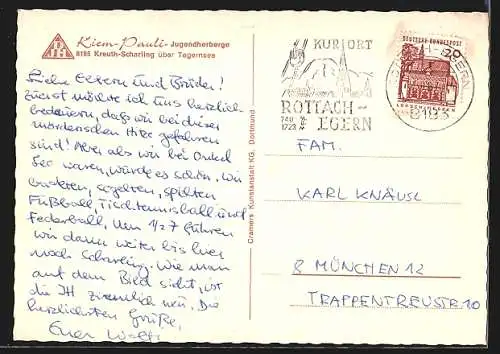 Kiem-Pauli-Jugendherberge
8185 Kreuth-Scharling über Tegernsee
Liebe Eltern und Brüder!
Zuerst möchte ich uns herzlich
bedauern, daß wir bei dieser
mörderischen Hitze gefahren
sind! Aber als wir bei Onkel
Sec waren, wurde es schön. Wir
badeten, segelten, spielten
Fußball, Tischtennisball und
Federball. Um 1/2 7 fuhren
wir dann weiter bis hier
nach Scharling. Wie man
auf dem Bild sieht, ist
die JH ziemlich neu. Die
herzlichsten Grüße,
Euer
Cramers Kunstanstalt KG, Dortmund
KURORT
ROTTACH-
EGERN
DEUTSCHE BUNDESPOST
20
FAM.
KARL KNÄUSL
8 MÜNCHEN 12
TRAPPENTREUSTR 10